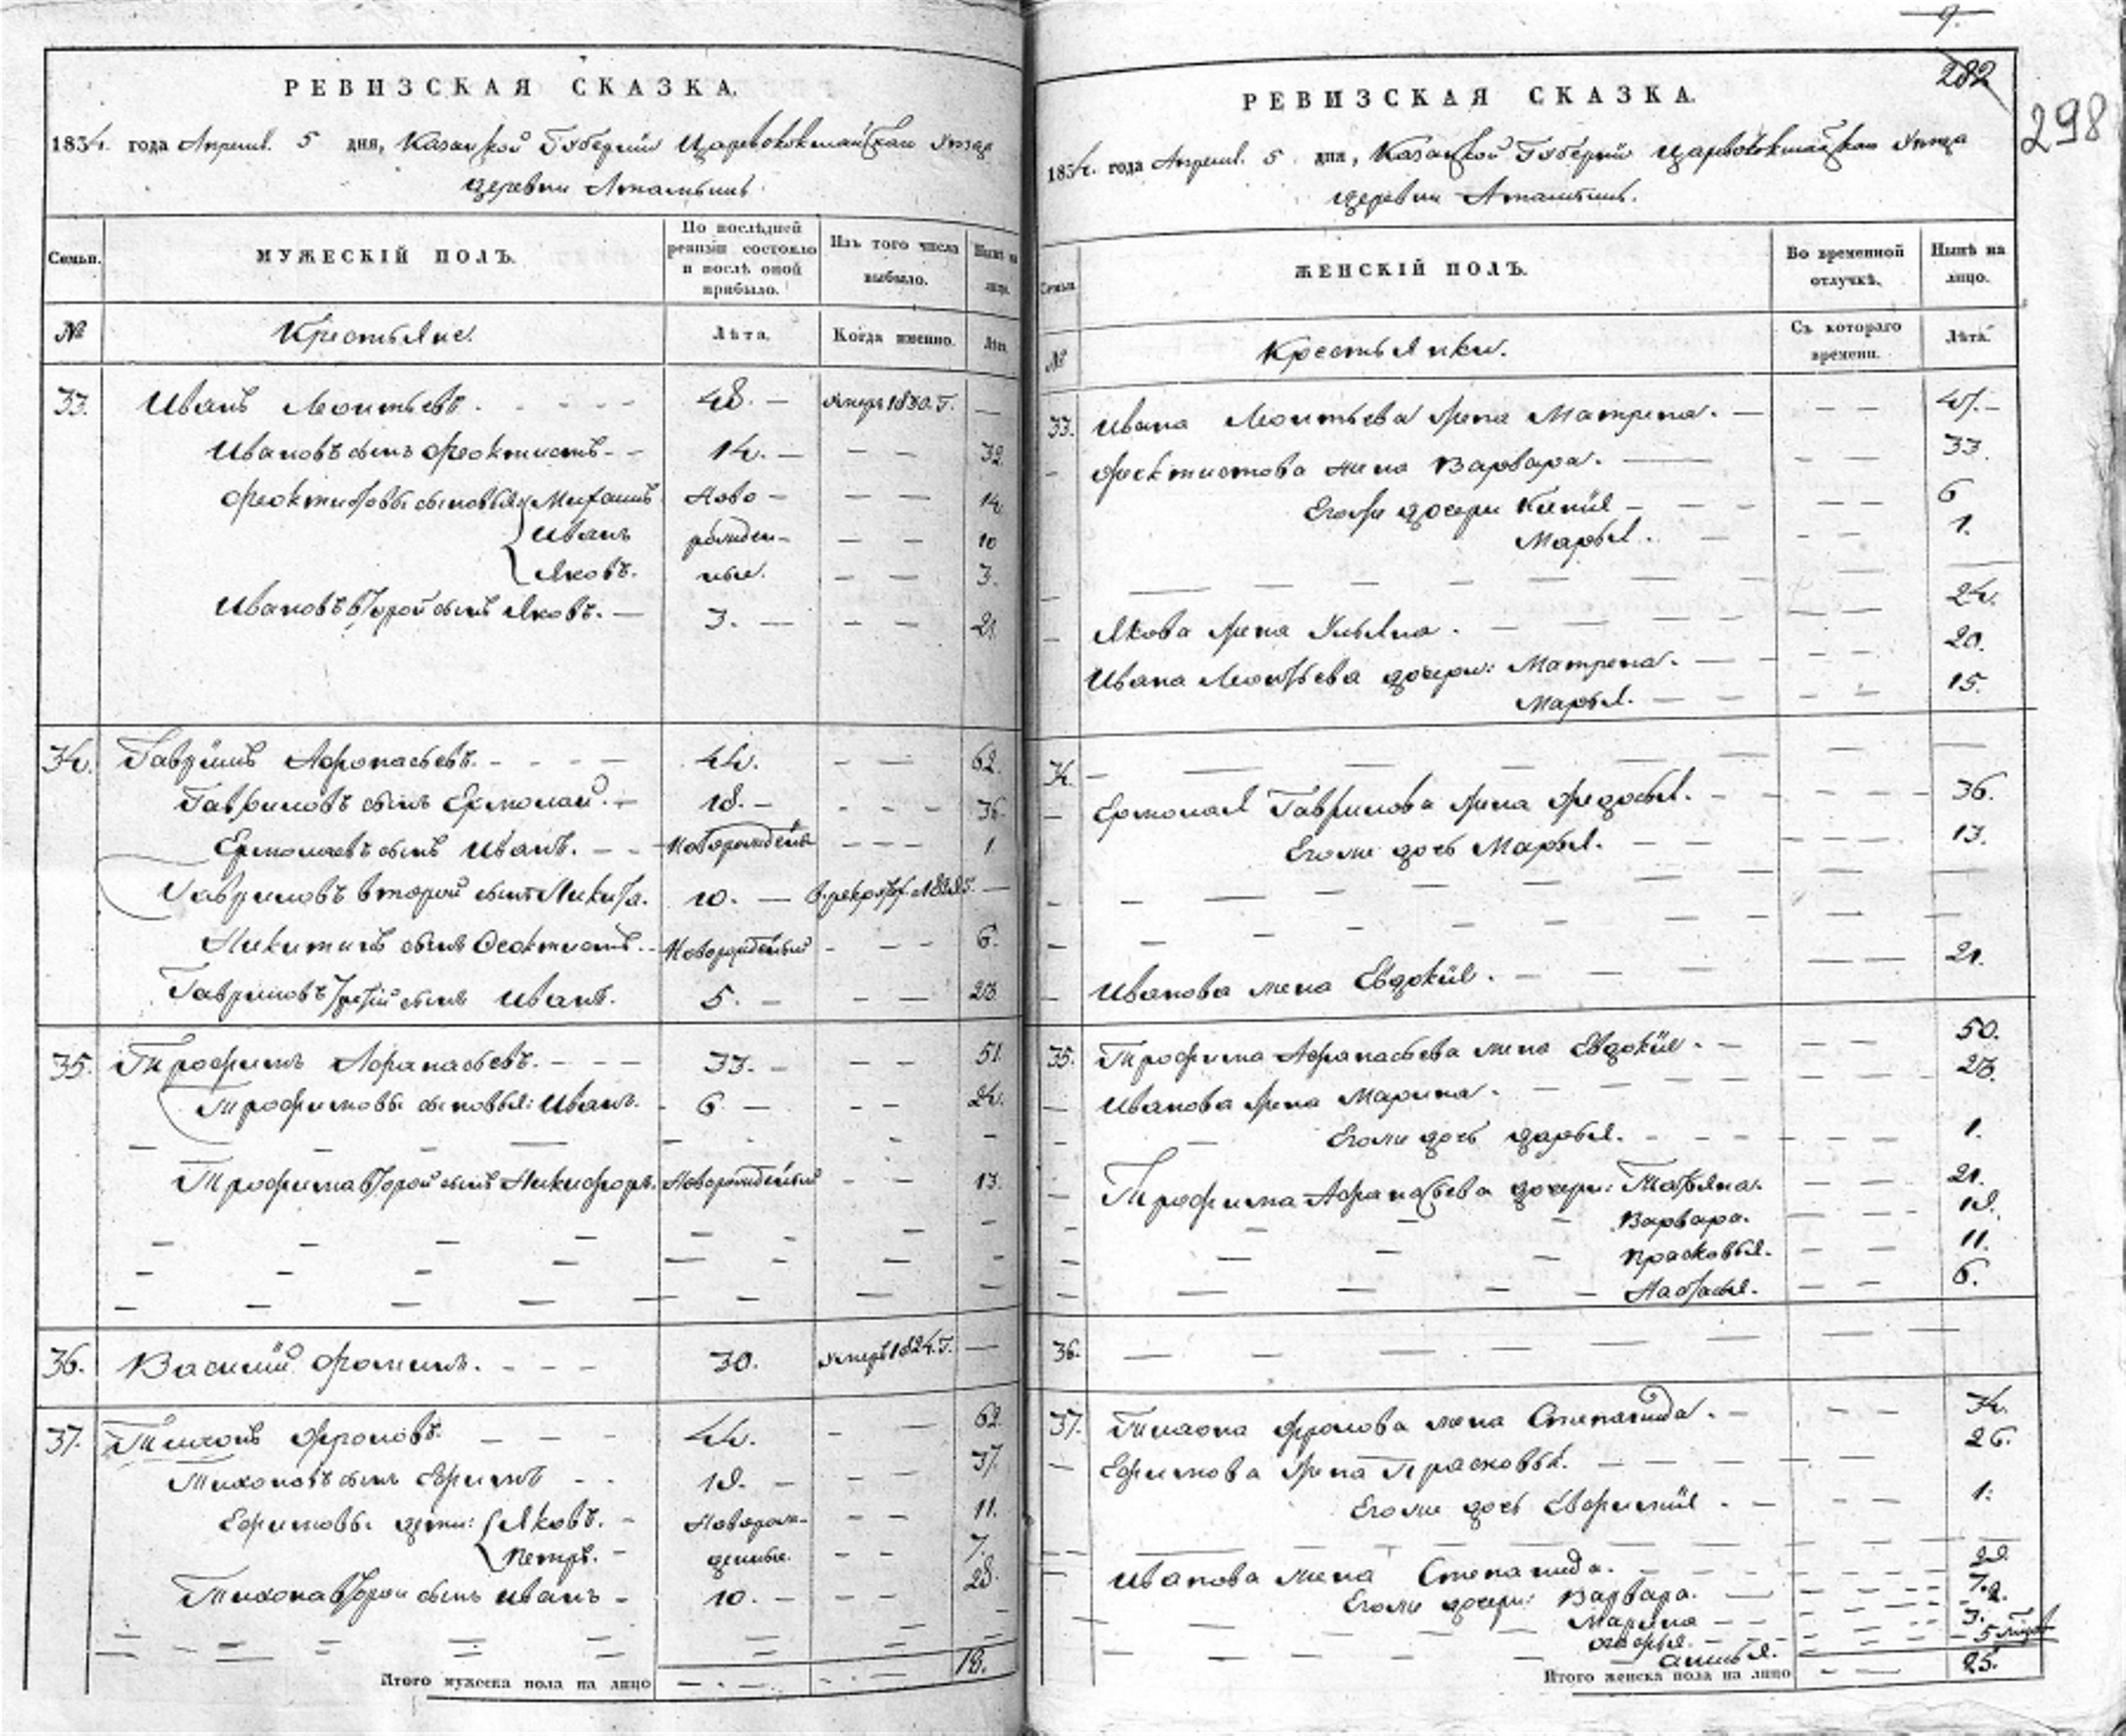 РЕВИЗСКАЯ СКАЗКА.
1834. года Апреля 5 дня, Казанской Губернии Царевококшайскаго Уезда
деревни
Семьи. МУЖЕСКІЙ ПОЛЪ. По послѣдней ревизіи состояло и послѣ оной прибыло. Изъ того числа выбыло. Нынѣ на лицо.
№ Крестьяне. Лѣта. Когда именно. Лѣта.
33. Иванъ Леонтьевъ. 48. 1830. Г.
Ивановъ сынъ Феоктистъ 14. 32
Феоктистовы сыновья Михаилъ Ново 14
Иванъ рожден- 10
Яковъ. ные. 3.
Ивановъ второй сынъ Яковъ. 3. 21.
34. Гаврилъ Афонасьевъ. 44. 62.
Гавриловъ сынъ Ермолай. 18. 36
Ермолаевъ сынъ Иванъ. Новорожденъ 1
Гавриловъ второй сынъ Никита. 10.
Никитинъ сынъ Феоктистъ. Новорожденный 6.
Гавриловъ третій сынъ Иванъ. 5. 23.
35. Трофимъ Афанасьевъ. 33. 51.
Трофимовы сыновья: Иванъ. 6 24.
Трофима второй сынъ Никифоръ. Новорожденный 13.
36. Василій Фроминъ. 30. 1824. Г.
37. Тихонъ Фроловъ. 44. 62.
Тихоновъ сынъ Ефимъ 19. 37.
Ефимовы дети: Яковъ. Новорож- 11.
Петръ. денные. 7.
Тихона второй сынъ Иванъ 10. 28.
Итого мужеска пола на лицо 18.
9.
282
298
РЕВИЗСКАЯ СКАЗКА.
1834. года Апреля. 5 дня, Казанской Губерніи Царевококшайскаго Уезда
деревни
Семьи. ЖЕНСКІЙ ПОЛЪ. Во временной отлучкѣ. Нынѣ на лицо.
№ Крестьянки. Съ котораго времени. Лѣта.
33. Ивана Леонтьева жена Матрена.
Феоктистова жена Варвара. 33.
Егоже дочери Ксенія 6
Марья. 1.
Якова жена Ульяна. 24.
Ивана Леонтьева дочери: Матрена. 20.
Марья. 15.
34.
Ермолая Гаврилова жена Федосья. 36.
Егоже дочь Марья. 13.
Иванова жена Евдокія. 21.
35. Трофима Афанасьева жена Евдокія. 50.
Иванова жена Марина. 23.
Егоже дочь Дарья. 1.
Трофима Афанасьева дочери: Татьяна. 21.
Варвара. 18.
Прасковья. 11.
Настасья. 6.
36.
37. Тихона Фролова жена Степанида. 34.
Ефимова жена Прасковья. 26.
Егоже дочь Евфимія. 1.
Иванова жена Степанида.
Егоже дочери: Варвара. 7.
Марина
3.
Итого женска пола на лицо 25.